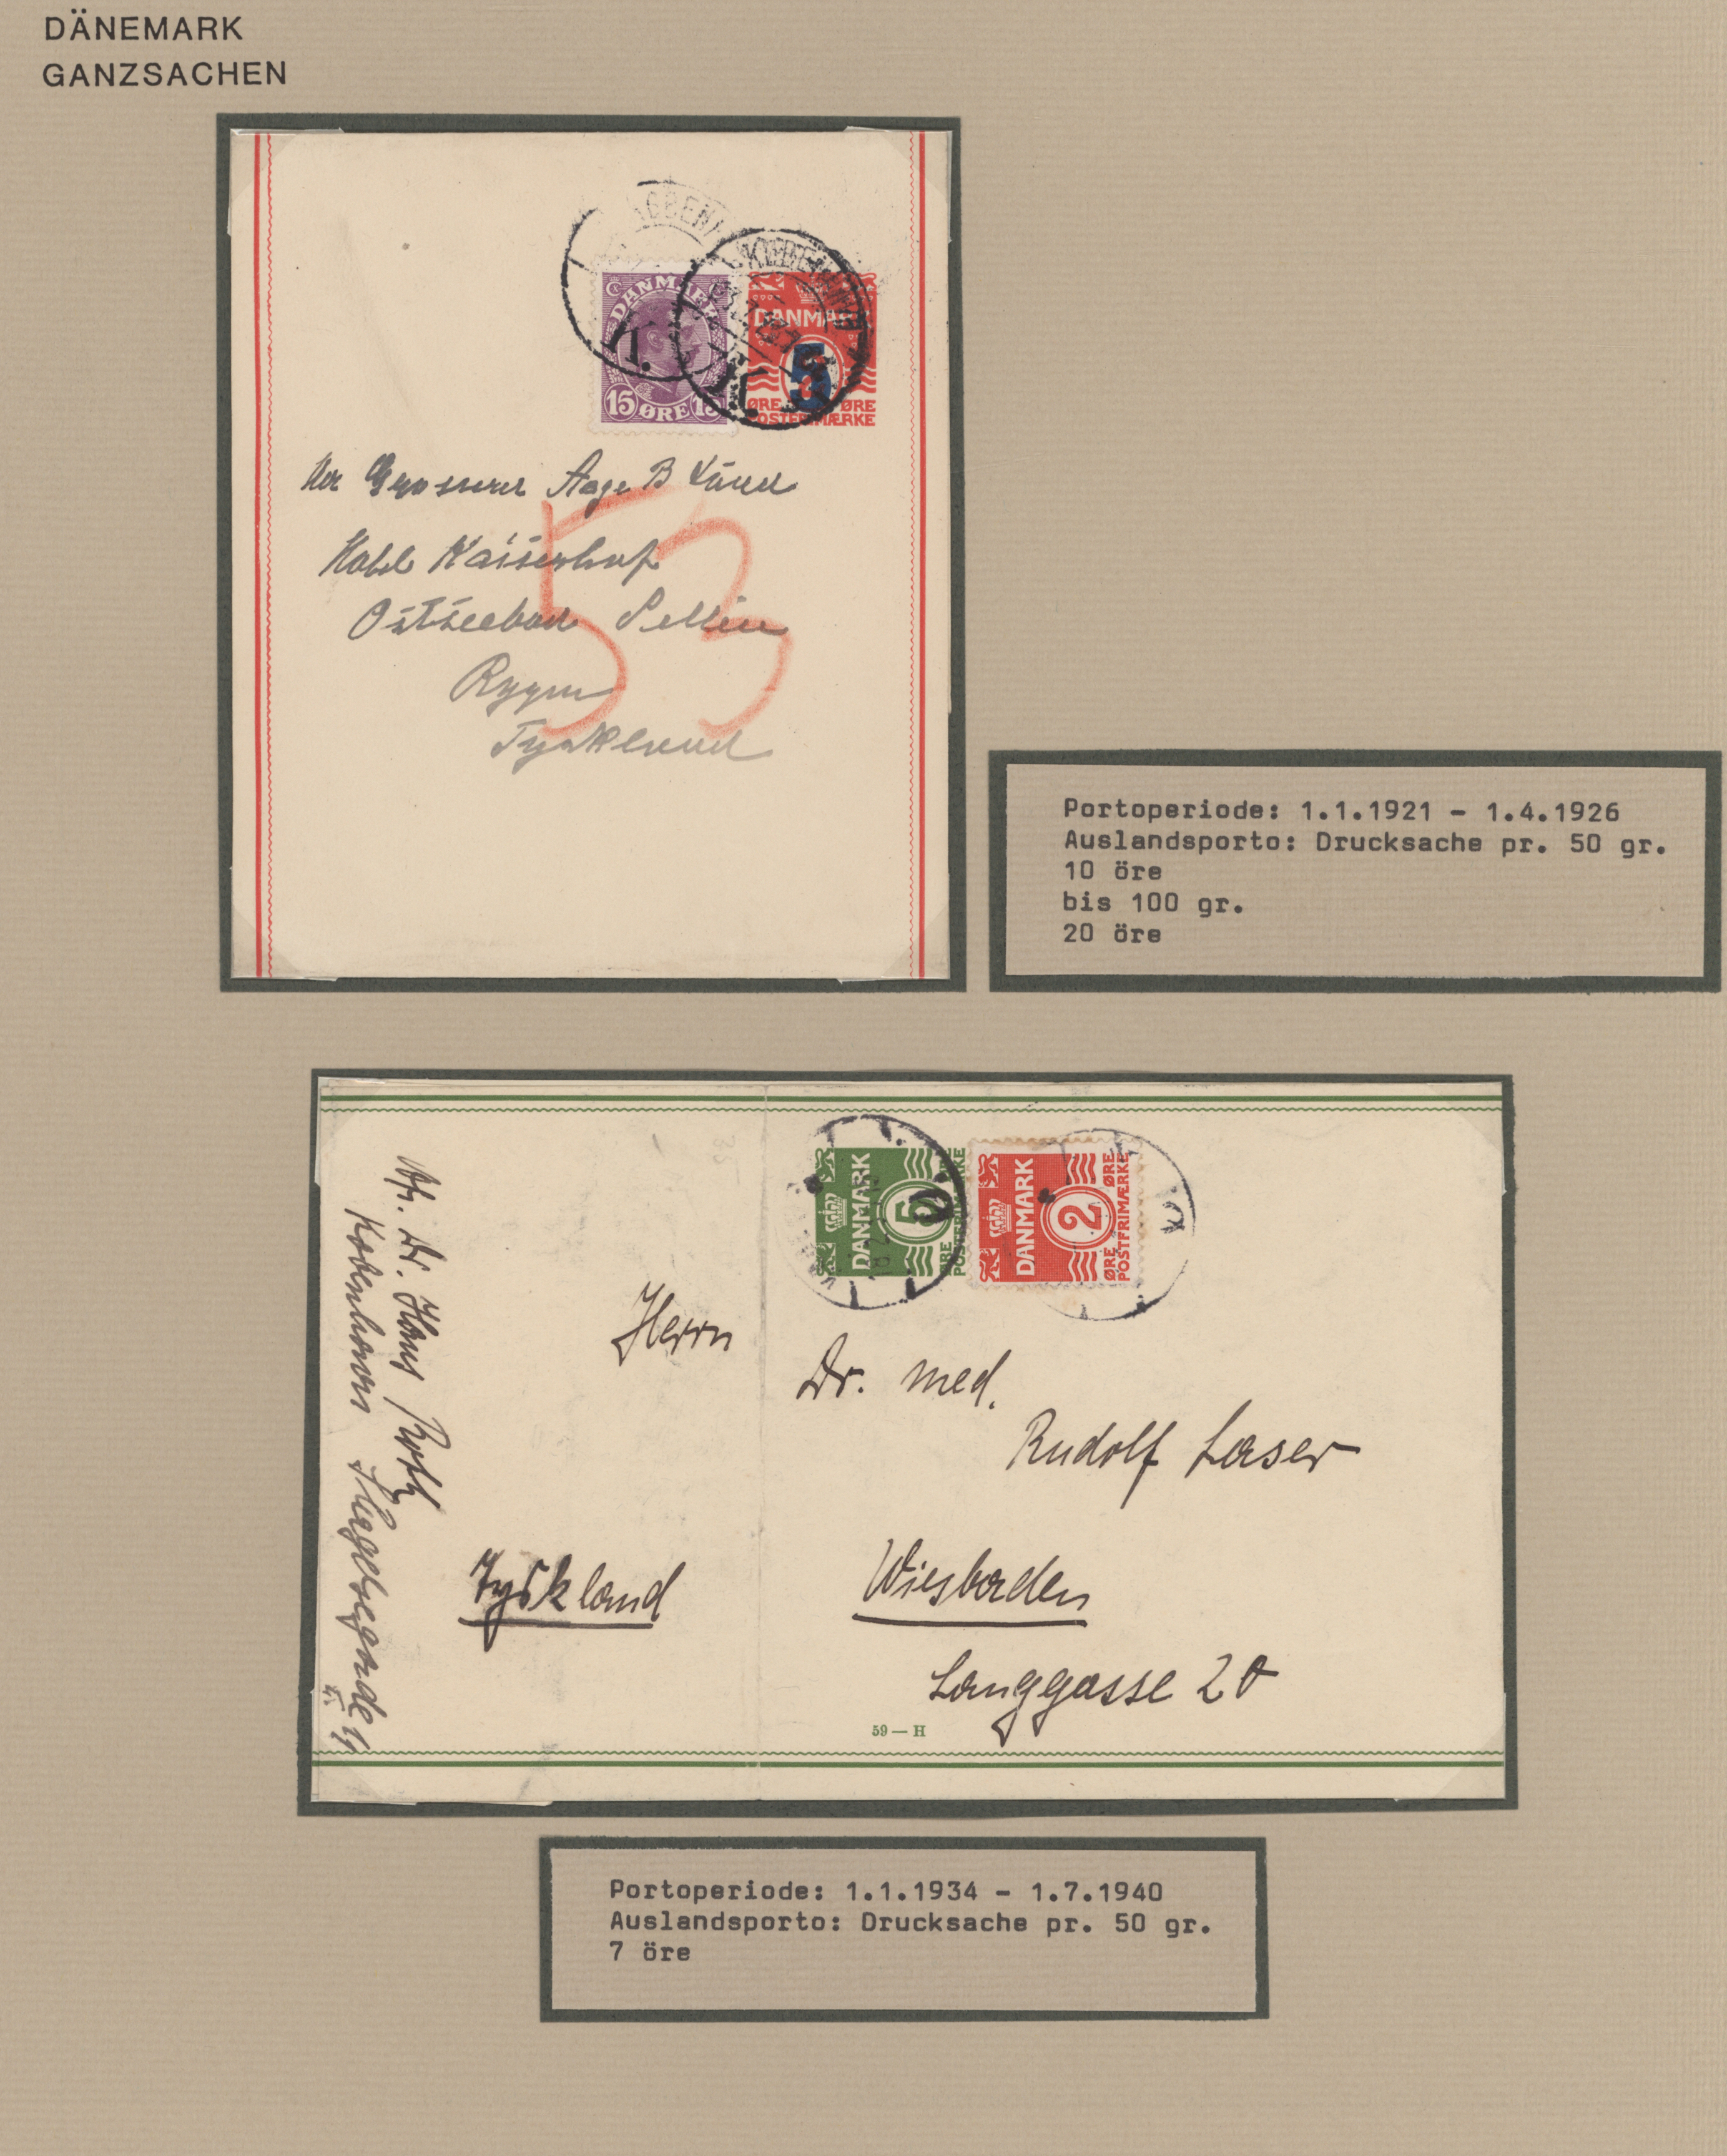 DÄNEMARK
GANZSACHEN
KØBENHAVN
K.
K.
DANMARK
15 ØRE 15
DANMARK
5
ØRE ØRE
POSTFRIMÆRKE
Grosserer Aage B Lund
Hotel Kaiserhof
Ostseebad Sellin
Rygen
Tyskland
53
Portoperiode: 1.1.1921 - 1.4.1926
Auslandsporto: Drucksache pr. 50 gr.
10 öre
bis 100 gr.
20 öre
DANMARK
5
ØRE
POSTFRIMÆRKE
DANMARK
2
ØRE ØRE
POSTFRIMÆRKE
K.
Afs. Dr. Hans Roth
Kobenhavn
Herrn
Dr. med.
Rudolf Laser
Tyskland
Wiesbaden
Langgasse 20
59 — H
Portoperiode: 1.1.1934 - 1.7.1940
Auslandsporto: Drucksache pr. 50 gr.
7 öre